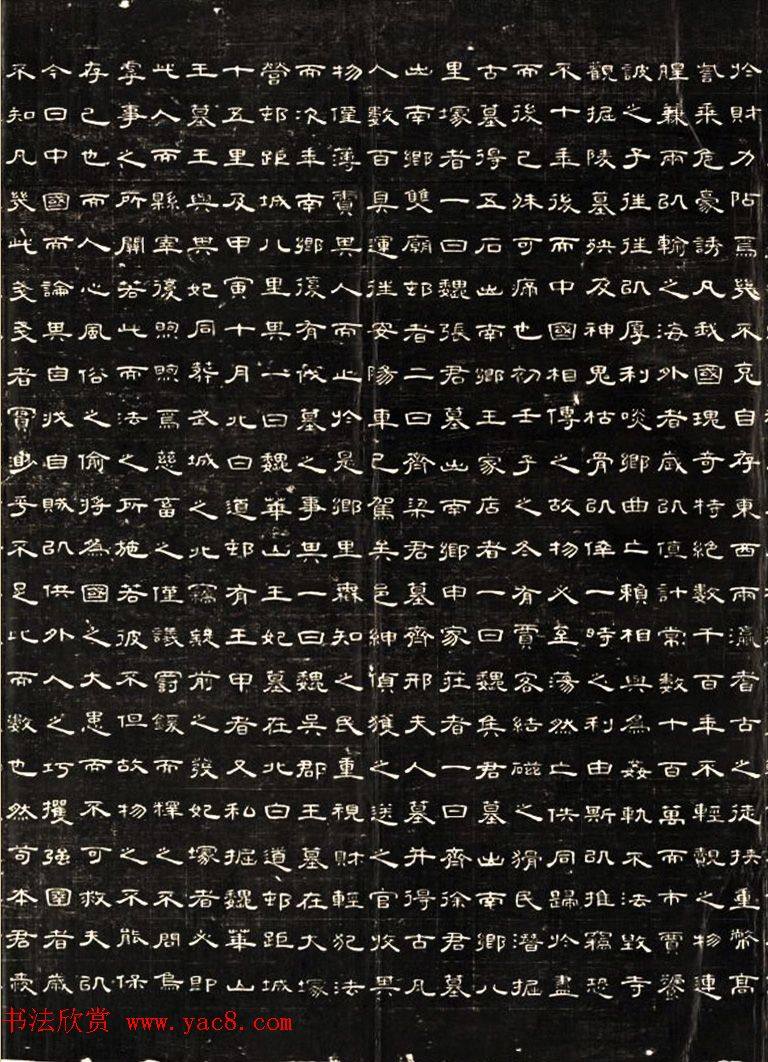 於財力阽焉幾不克自存東西兩瀛者古之徒挾重幣高
訾乘危豪誘凡我國瑰奇特絕數千百年不輕覯之物連
艎兼兩以輸之海外者歲以億計常數十百萬而市賈饕
詖之子往往以厚利啖鄉曲亡賴相與為姦軌不法毀寺
觀掘陵墓殃及神鬼枯骨以倖一時之利由斯以推竊恐
不十年後而中國相傳之故物必至蕩然亡佚同歸於盡
而後已殊可痛也初壬子之冬有賈客結磁之猾民潛掘
古墓得五石出南鄉王家店者一曰魏雋君墓出南鄉八
里塚者一曰魏張君墓出南鄉申家莊者一曰齊徐君墓
出南鄉雙廟邨者二曰齊梁君墓齊邢夫人墓并得古凡
人數百具運往安陽車已駕矣邑紳偵獲之送之官收其
物僅薄責其人而止於是鄉里森知之民重視財輕犯法
而次年南鄉復有伐墓之事其一曰魏吳郡王墓在大塚
營邨距城八里其一曰魏華山王妃墓在北白道邨距城
十五里及甲寅十月北白道邨有王甲者又私掘魏華山
王墓王與其妃同葬武城之北竊毀前之發妃塚者必即
此人而縣宰復煦煦焉慈畜之僅議罰鍰而釋之不問烏
虖事之所關若此而法之所施若彼不但故物之不能保
存已也而人心風俗之偷將為國之大患而不可救夫以
今日中國而論其自戕自賊以供外人之巧攫強圉者歲
不知凡幾此戔戔者實尠乎不足比而數也然苟本君
书法欣赏 www.yac8.com